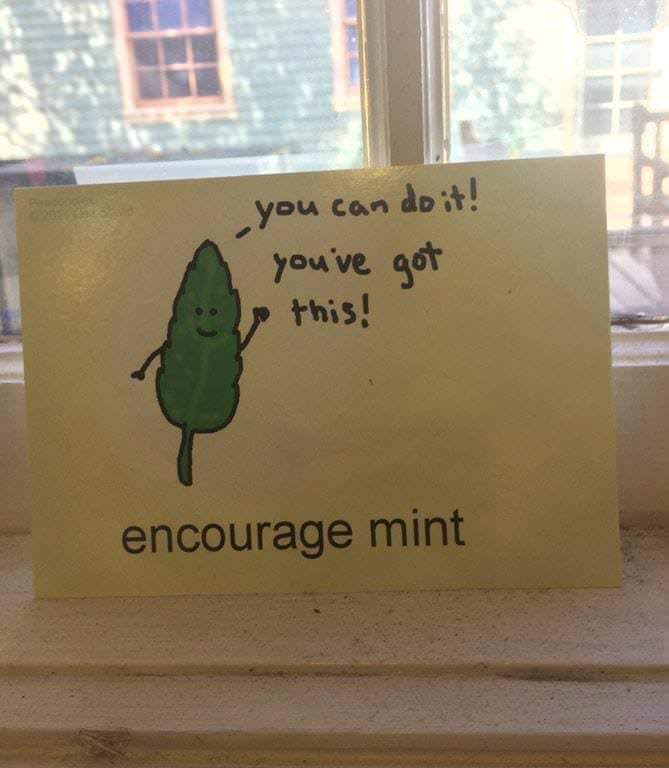 you can do it!
you've got
this!
encourage mint